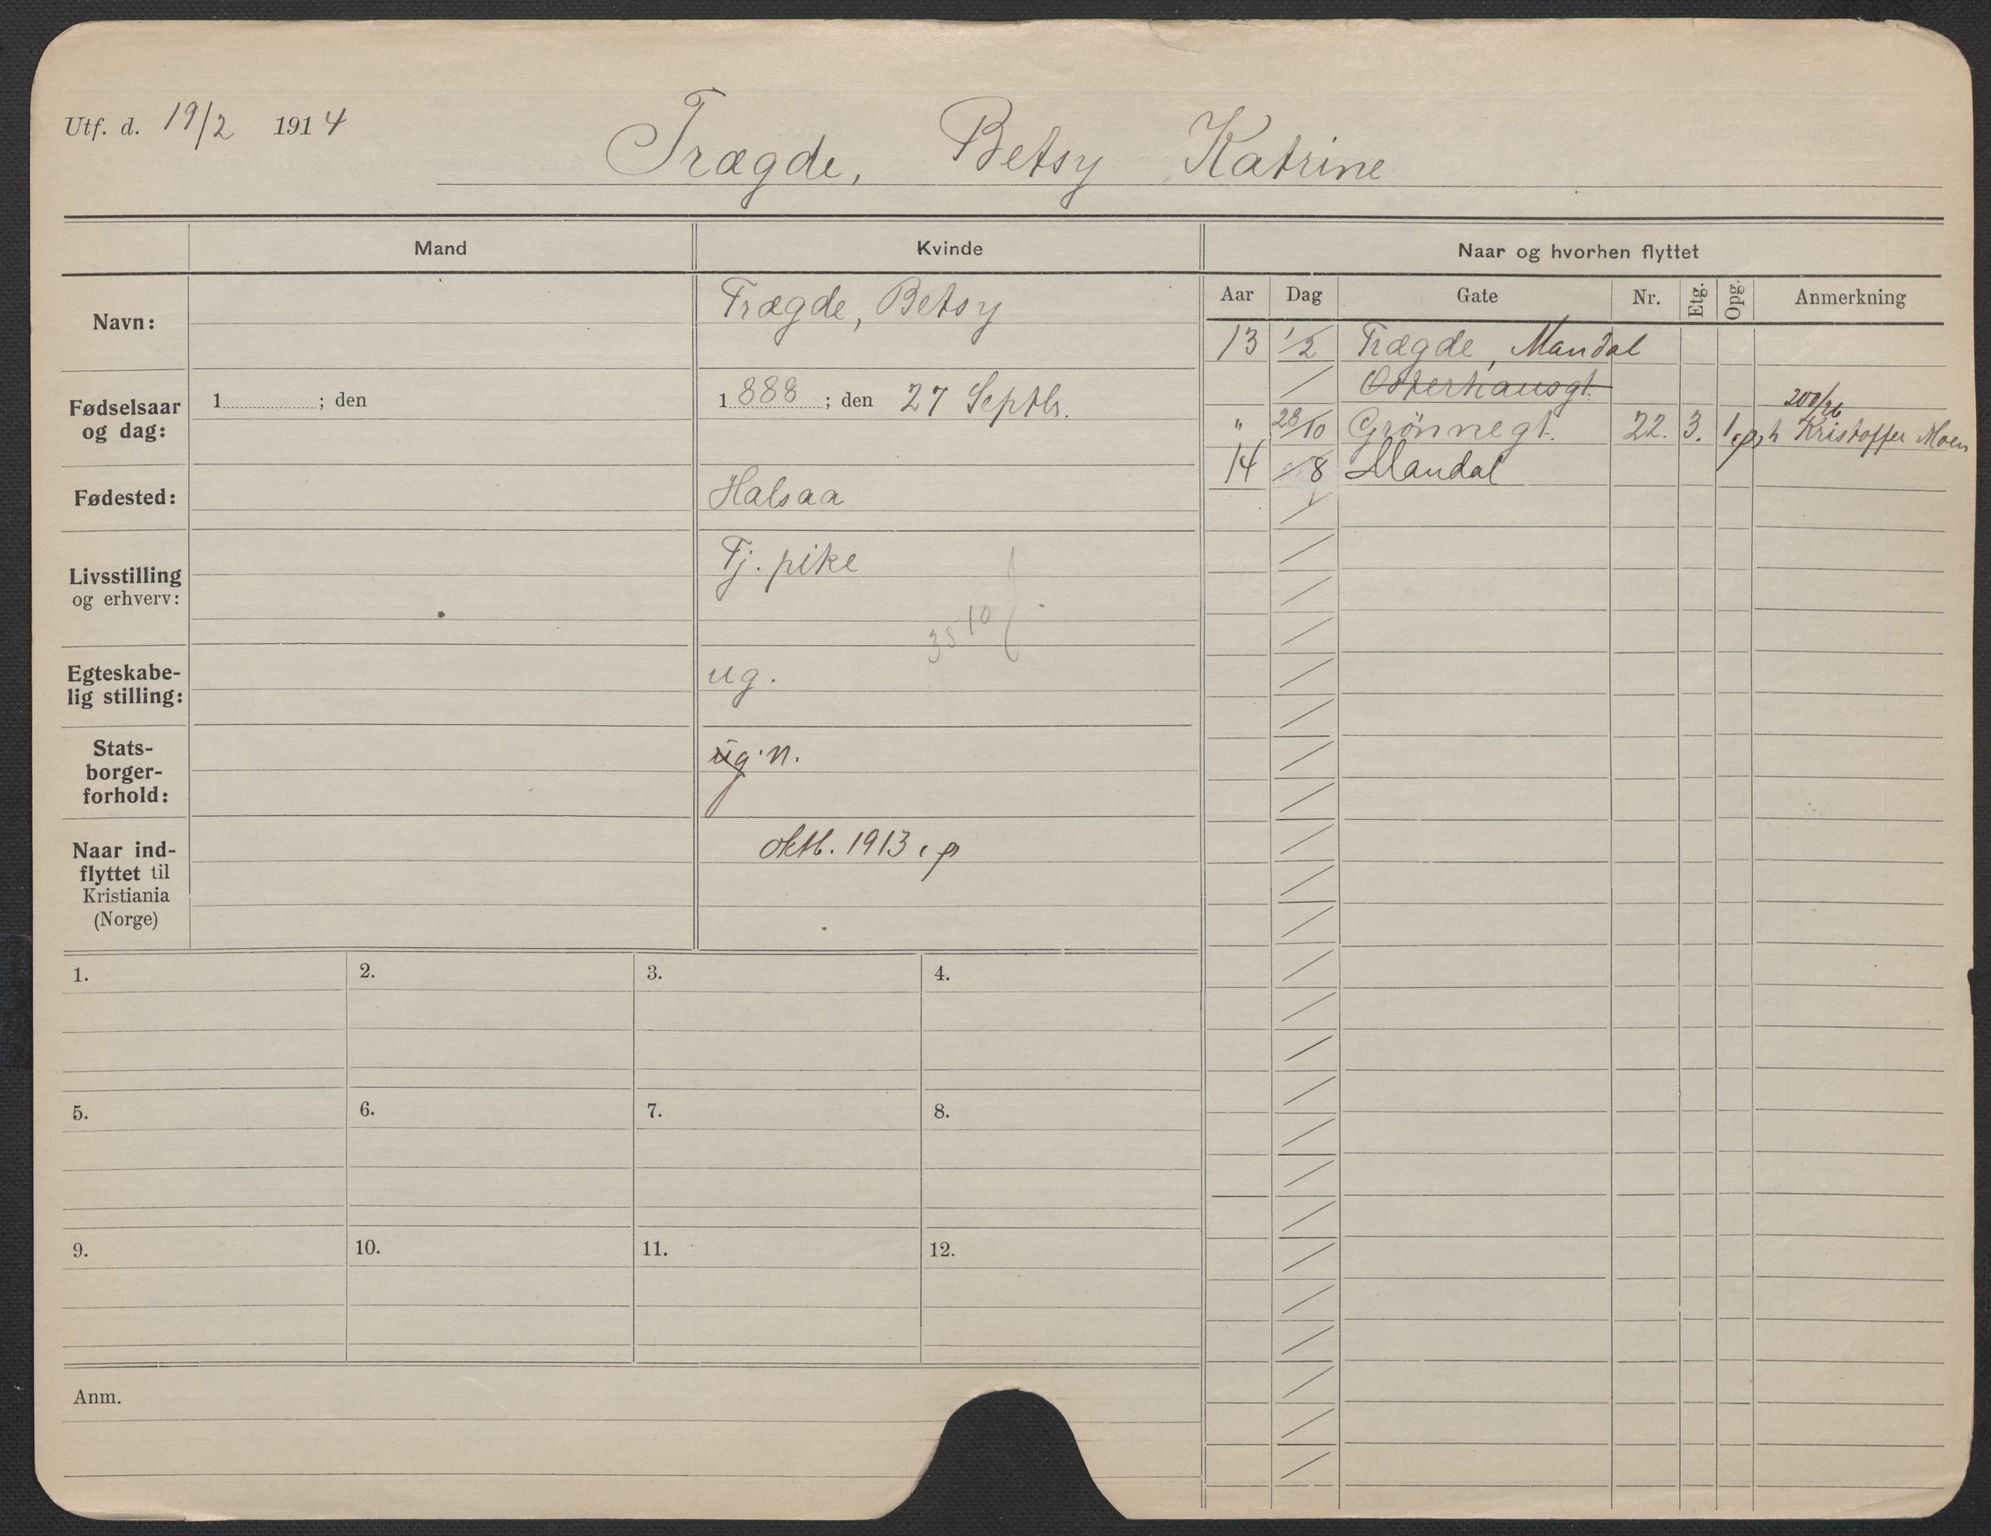 Utf. d. 19/2 1914
Trægde, Betsy Katrine
Mand
Kvinde
Naar og hvorhen flyttet
Navn:
Trægde, Betsy
Fødselsaar og dag:
1 ; den
1888 ; den 27 Septbr.
Fødested:
Halsaa
Livsstilling og erhverv:
Tj. pike
35 10
Egteskabelig stilling:
ug.
Stats-
borger-
forhold:
ug. n.
Naar ind-
flyttet til
Kristiania
(Norge)
oktb. 1913
Aar Dag Gate Nr. Etg. Opg. Anmerkning
13 1/2 Trægde, Mandal
Osterhausgt.
200/26
" 28/10 Grønnegt. 22. 3. 1 Kristoffer Moen
14 /8 Mandal
1. 2. 3. 4.
5. 6. 7. 8.
9. 10. 11. 12.
Anm.